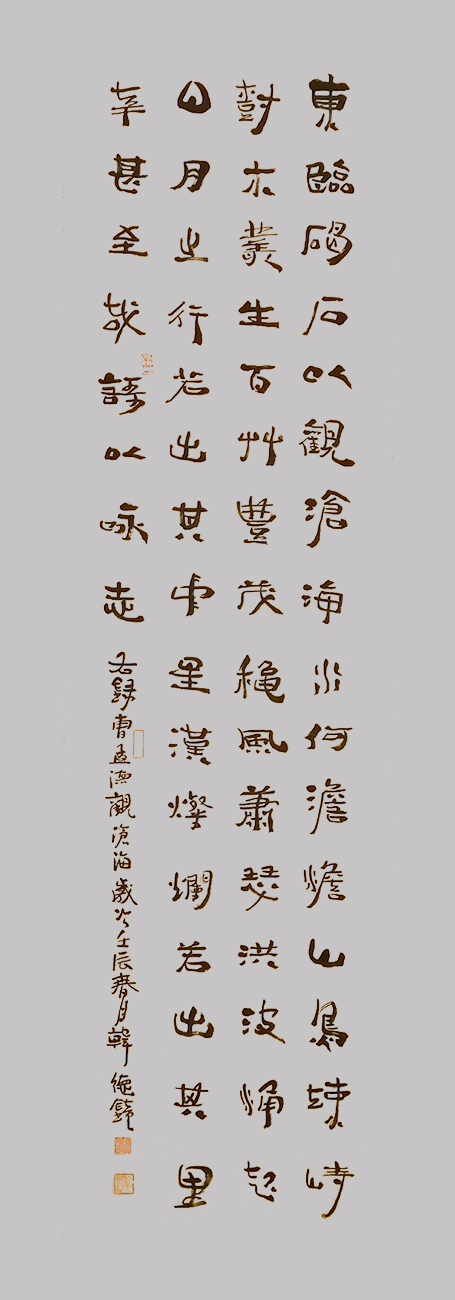 東臨碣石以觀滄海水何澹憺山島竦峙
樹木叢生百艸豐茂穐風蕭瑟洪波涌起
日月之行若出其中星漢燦爛若出其里
幸甚至哉謌以咏志 右録曹孟德觀滄海歲次壬辰春月韓德